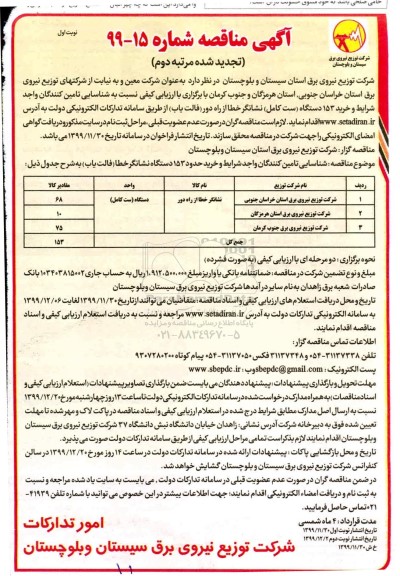 نوبت اول
آگهی مناقصه شماره ۱۵-۹۹
(تجدید شده مرتبه دوم)
شرکت توزیع نیروی برق
سیستان و بلوچستان
شرکت توزیع نیروی برق استان سیستان و بلوچستان در نظر دارد به‌عنوان شرکت معین و به نیابت از شرکتهای توزیع نیروی
برق استان خراسان جنوبی، استان هرمزگان و جنوب کرمان با برگزاری با ارزیابی کیفی نسبت به شناسایی تامین کنندگان واجد
شرایط و خرید ۱۵۳ دستگاه (ست کامل) نشانگر خطا از راه دور (فالت یاب) از طریق سامانه تدارکات الکترونیکی دولت به آدرس
www.setadiran.ir اقدام نماید. لازم است مناقصه گران در صورت عدم عضویت قبلی، مراحل ثبت نام در سایت مذکور و دریافت گواهی
امضای الکترونیکی را جهت شرکت در مناقصه محقق سازند. تاریخ انتشار فراخوان در سامانه تاریخ ۱۳۹۹/۱۱/۳۰ می باشد.
مناقصه گزار: شرکت توزیع نیروی برق استان سیستان وبلوچستان
موضوع مناقصه: شناسایی تامین کنندگان واجد شرایط و خرید حدود ۱۵۳ دستگاه نشانگر خطا (فالت یاب) به شرح جدول ذیل:
ردیف نام شرکت توزیع نام کالا واحد مقادیر کالا
۱ شرکت توزیع نیروی برق استان خراسان جنوبی نشانگر خطا از راه دور دستگاه (ست کامل) ۶۸
۲ شرکت توزیع نیروی برق استان هرمزگان ۱۰
۳ شرکت توزیع نیروی برق جنوب کرمان ۷۵
جمع کل ۱۵۳
نحوه برگزاری: دو مرحله ای با ارزیابی کیفی (به صورت فشرده)
مبلغ و نوع تضمین شرکت در مناقصه: ضمانتنامه بانکی یا واریز مبلغ ۱.۹۱۲.۵۰۰.۰۰۰ ریال به حساب جاری ۱۰۳۴۰۳۸۱۵۰۰۲ بانک
صادرات شعبه برق زاهدان به نام سایر درآمدها شرکت توزیع نیروی برق سیستان وبلوچستان
تاریخ و محل دریافت استعلام های ارزیابی کیفی و اسناد مناقصه: متقاضیان می توانند از تاریخ ۱۳۹۹/۱۱/۳۰ لغایت ۱۳۹۹/۱۲/۰۶
به سامانه الکترونیکی تدارکات دولت به آدرس www.setadiran.ir مراجعه و نسبت به دریافت استعلام ارزیابی کیفی و اسناد
مناقصه اقدام نمایند.
پایگاه اطلاع رسانی مناقصه و مزایده
۰۲۱-۸۸۳۴۹۶۷۰-۵
اطلاعات تماس مناقصه گزار:
تلفن ۳۱۱۳۷۳۳۸-۰۵۴ و ۳۱۱۳۷۳۴۸ فکس ۳۱۱۳۷۰۵۰-۰۵۴ پیام کوتاه ۹۳۰۷۲۸۲۰۰
پست الکترونیک: sbepdc@gmail.com وب: www.sbepdc.ir
مهلت تحویل و بارگذاری پیشنهادات: پیشنهاددهندگان می بایست ضمن بارگذاری تصاویر پیشنهادات (استعلام ارزیابی کیفی و
اسناد مناقصه) به همراه مدارک درخواست شده در سامانه تدارکات الکترونیکی دولت تا ساعت ۱۳ روز چهارشنبه مورخ ۱۳۹۹/۱۲/۲۰
نسبت به ارسال اصل مدارک مطابق شرایط درج شده در استعلام ارزیابی کیفی و اسناد مناقصه در پاکت لاک و مهر شده تا مهلت
تعیین شده فوق به دبیرخانه شرکت آدرس نشانی: زاهدان خیابان دانشگاه نبش دانشگاه ۳۷ شرکت توزیع نیروی برق سیستان
وبلوچستان اقدام نمایند لازم بذکر است تمامی مراحل ارزیابی کیفی از طریق سامانه تدارکات دولت صورت می پذیرد.
تاریخ و محل بازگشایی پاکات: پیشنهادات ارائه شده در سامانه تدارکات دولت در ساعت ۱۴ روز مورخ ۱۳۹۹/۱۲/۲۰ در سالن
کنفرانس شرکت توزیع نیروی برق سیستان وبلوچستان گشایش خواهد شد.
در ضمن مناقصه گران در صورت عدم عضویت قبلی در سامانه تدارکات دولت، می بایست به سایت یاد شده مراجعه و نسبت
به ثبت نام و دریافت امضاء الکترونیکی اقدام نمایند؛ جهت اطلاعات بیشتر در این خصوص می توانید با شماره تلفن ۴۱۹۳۴-
۰۲۱ تماس حاصل فرمایید.
مدت قرارداد: ۴ ماه شمسی
تاریخ انتشار نوبت اول: ۱۳۹۹/۱۱/۳۰
تاریخ انتشار نوبت دوم: ۱۳۹۹/۱۲/۲
خ ش: ۱۳۹۹/۱۱/۳۰
امور تدارکات
شرکت توزیع نیروی برق سیستان وبلوچستان